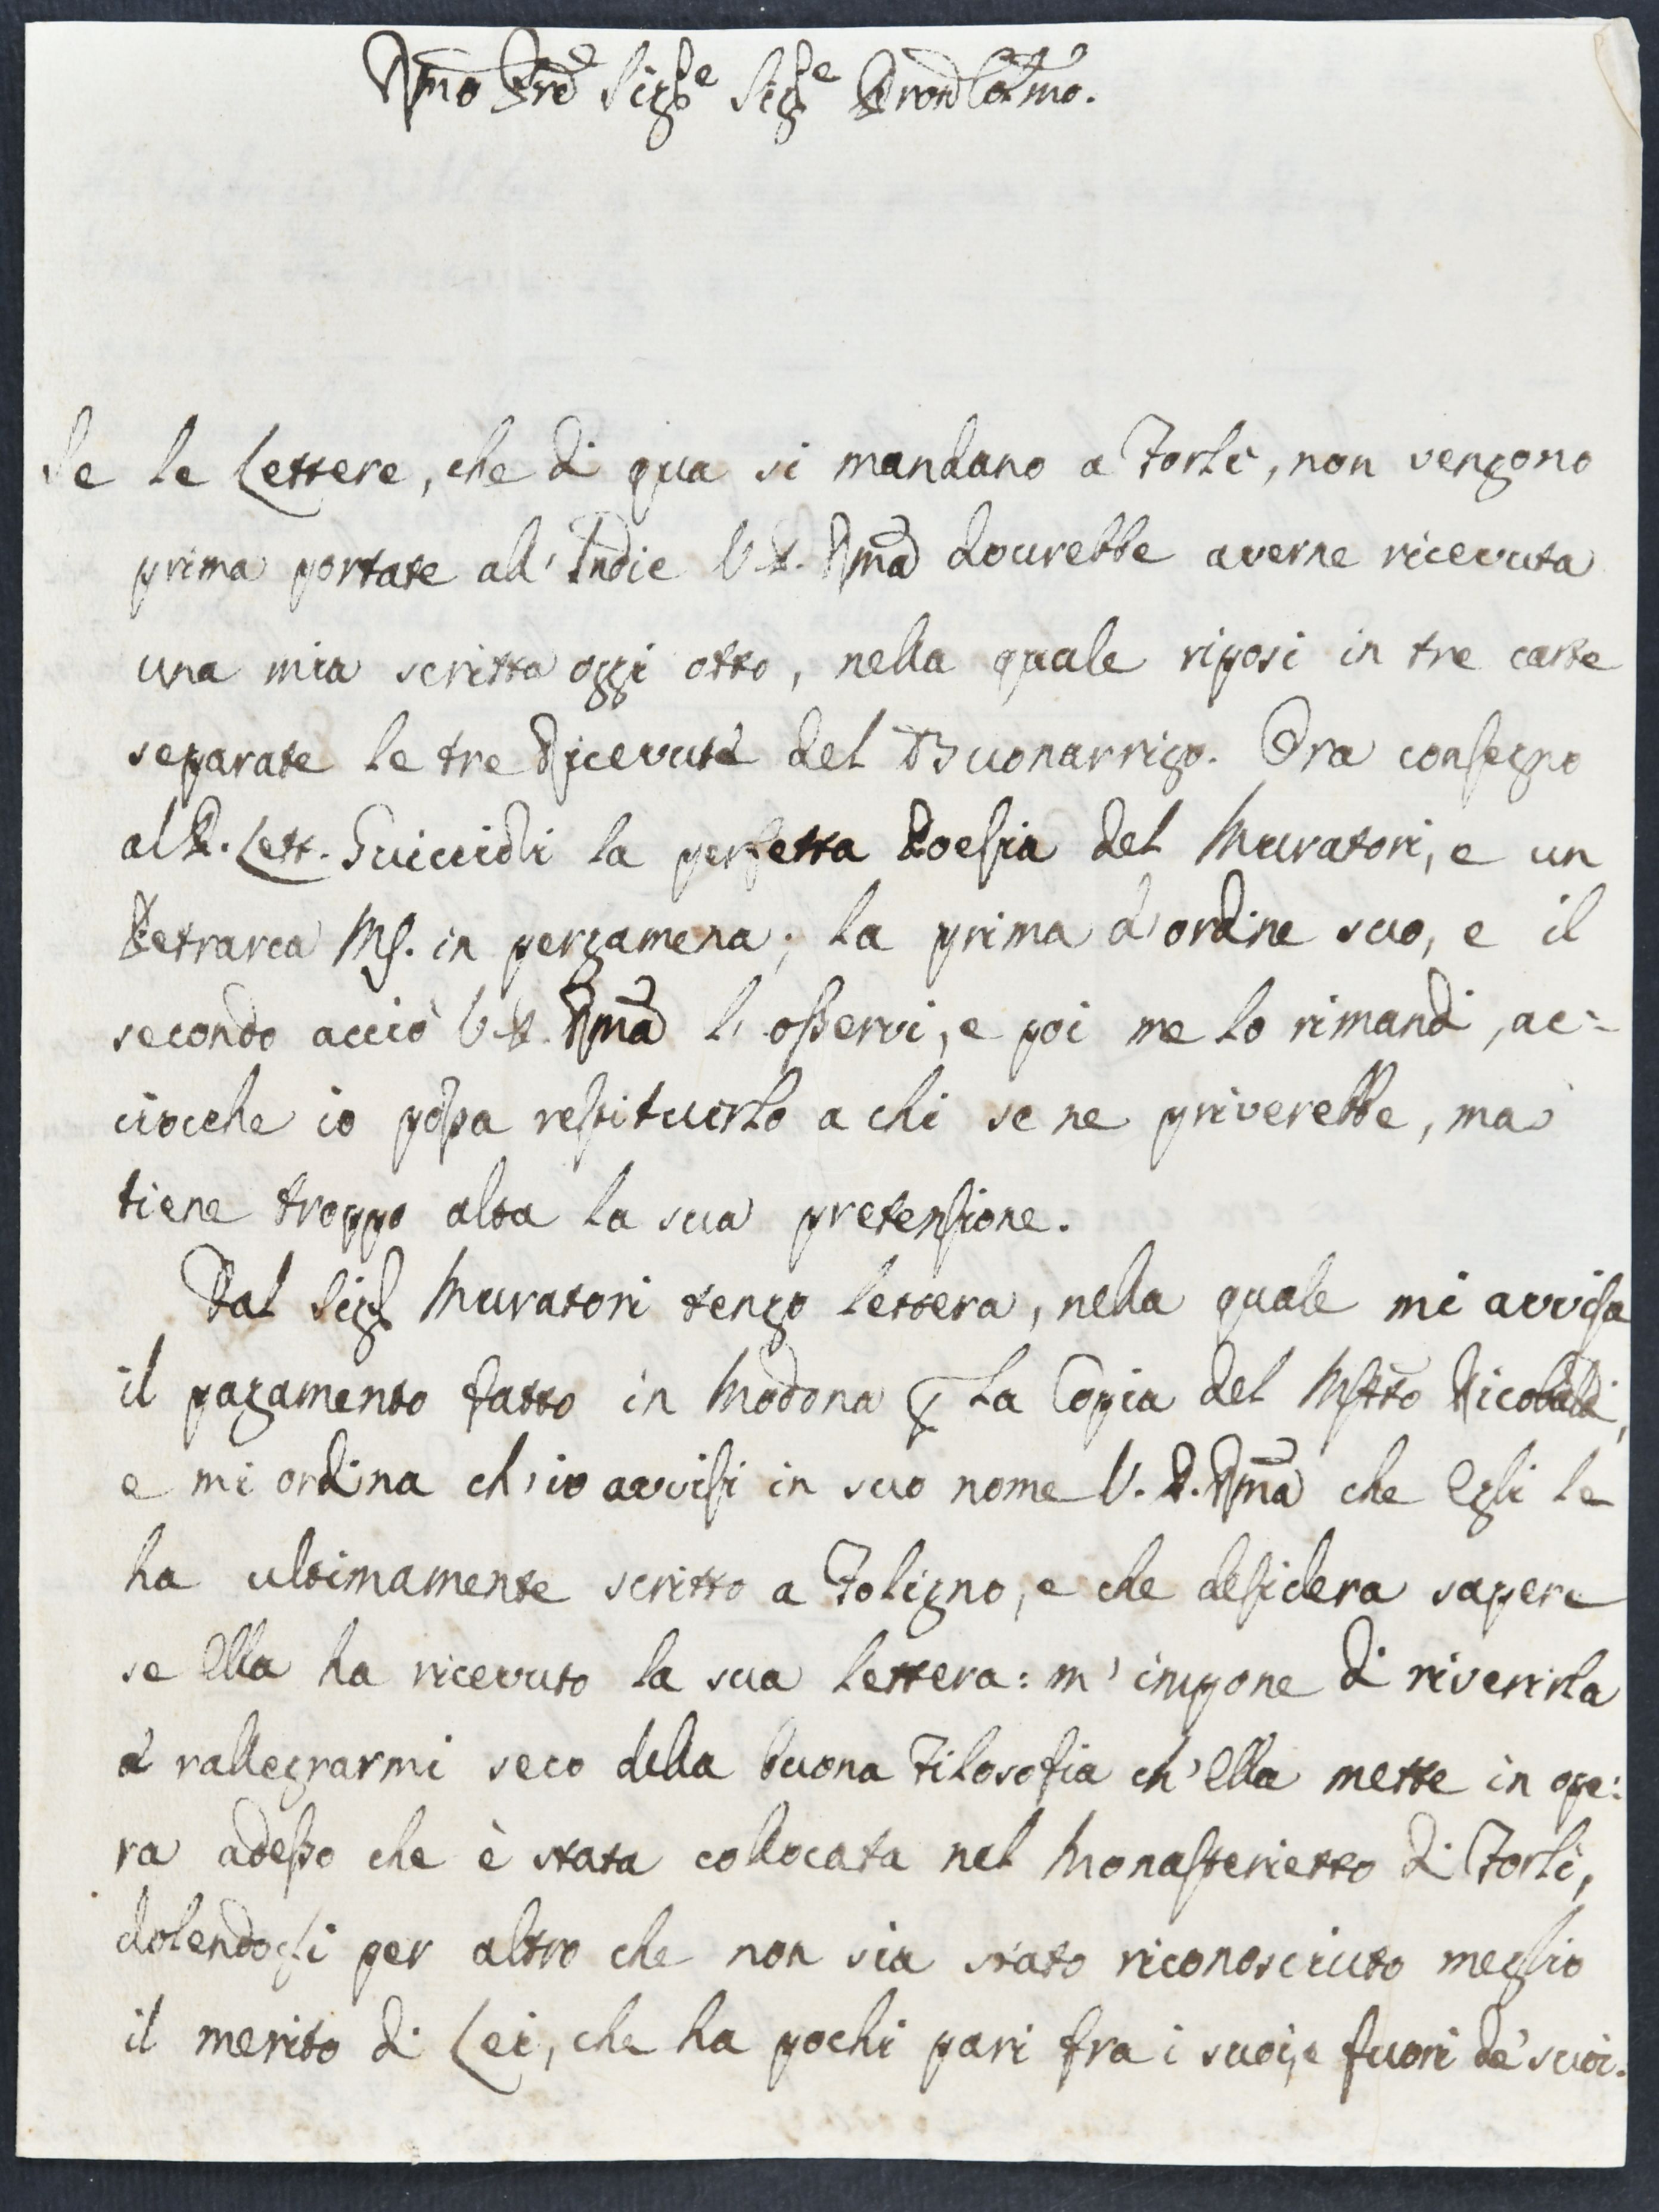 Rmo Pre Sigre Sigre Pron Colmo.
Se le Lettere, che di qua si mandano a Forlì, non vengono
prima portate all'Indie V. P. Rma dourebbe averne ricevuta
una mia scritta oggi otto, nella quale riposi in tre carte
separate le tre Ricevute del Buonarrigo. Ora consegno
al P. Lett. Guiccioli la perfetta Poesia del Muratori, e un
Petrarca Ms. in pergamena; la prima d'ordine suo, e il
secondo acciò V. P. Rma l'osservi, e poi me lo rimandi, ac=
ciocche io possa restituirlo a chi se ne priverebbe, ma
tiene troppo alta la sua pretensione.
Dal Sigr Muratori tengo lettera, nella quale mi avvisa
il pagamento fatto in Modona p la Copia del Mstto Ricobaldi,
e mi ordina ch'io avvisi in suo nome V. P. Rma che Egli le
ha ultimamente scritto a Foligno, e che desidera sapere
se Ella ha ricevuto la sua lettera: m'impone di riverirla
e rallegrarmi seco della buona Filosofia ch'Ella mette in ope:
ra adesso che è stata collocata nel Monasterietto di Forlì,
dolendosi per altro che non sia stato riconosciuto meglio
il merito di Lei, che ha pochi pari fra i suoi, e fuori de' suoi.